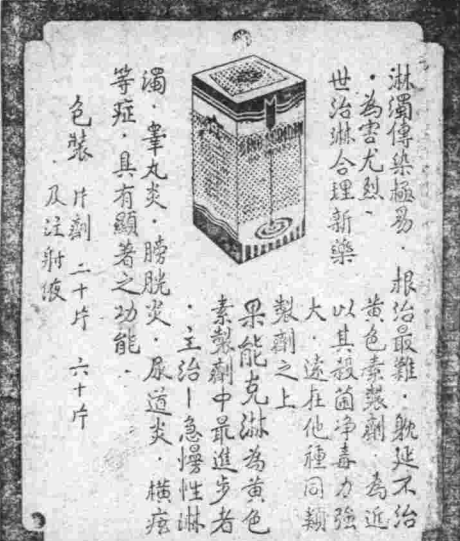 淋濁傳染極易．根治最難．躭延不治
．為害尤烈、黃色素製劑．為近
世治淋合理新藥以其殺菌净毒力強
大．遠在他種同類
製劑之上
果能克淋為黃色
素製劑中最進步者
．主治－急慢性淋
濁．睾丸炎．膀胱炎．尿道炎．橫痃
等症．具有顯著之功能．
色裝 片劑 二十片 六十片
．及注射液